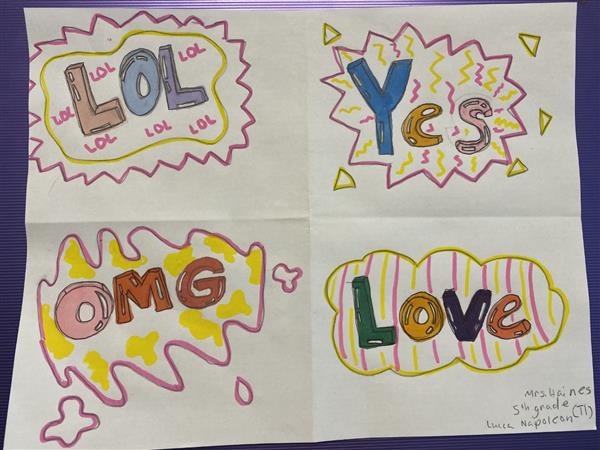 LOL
LOL LOL
LOL LOL
LOL LOL
Yes
OMG
Love
Mrs. Haines
5th grade (T1)
Lucca Napoleon